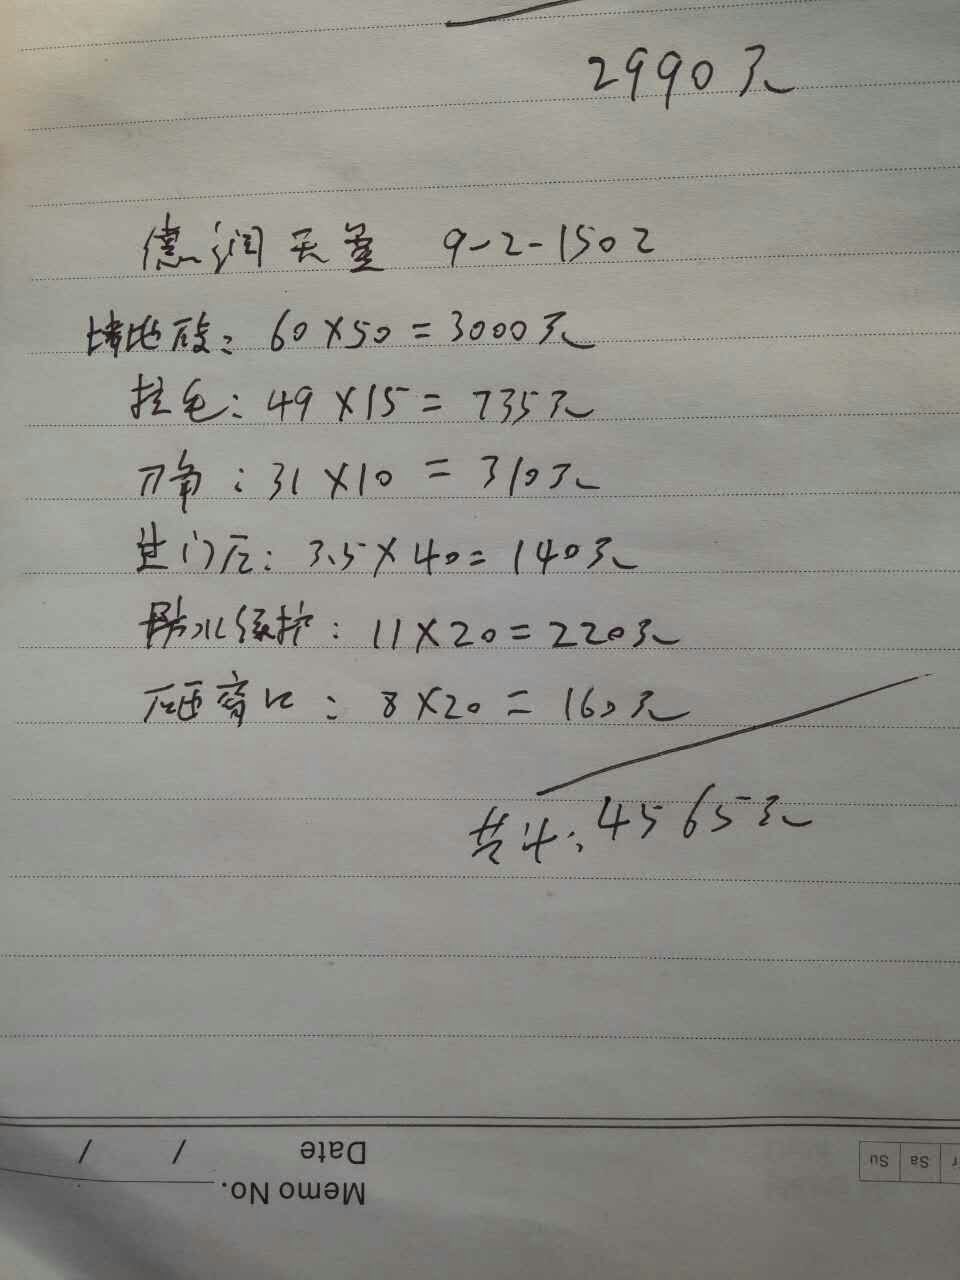 2990元
德润天玺 9-2-1502
墙地砖: 60×50=3000元
拉毛: 49×15=735元
刀角: 31×10=310元
过门石: 3.5×40=140元
防水保护: 11×20=220元
: 8×20=160元
共计: 4565元
Memo No.
Date / /
Sa Su